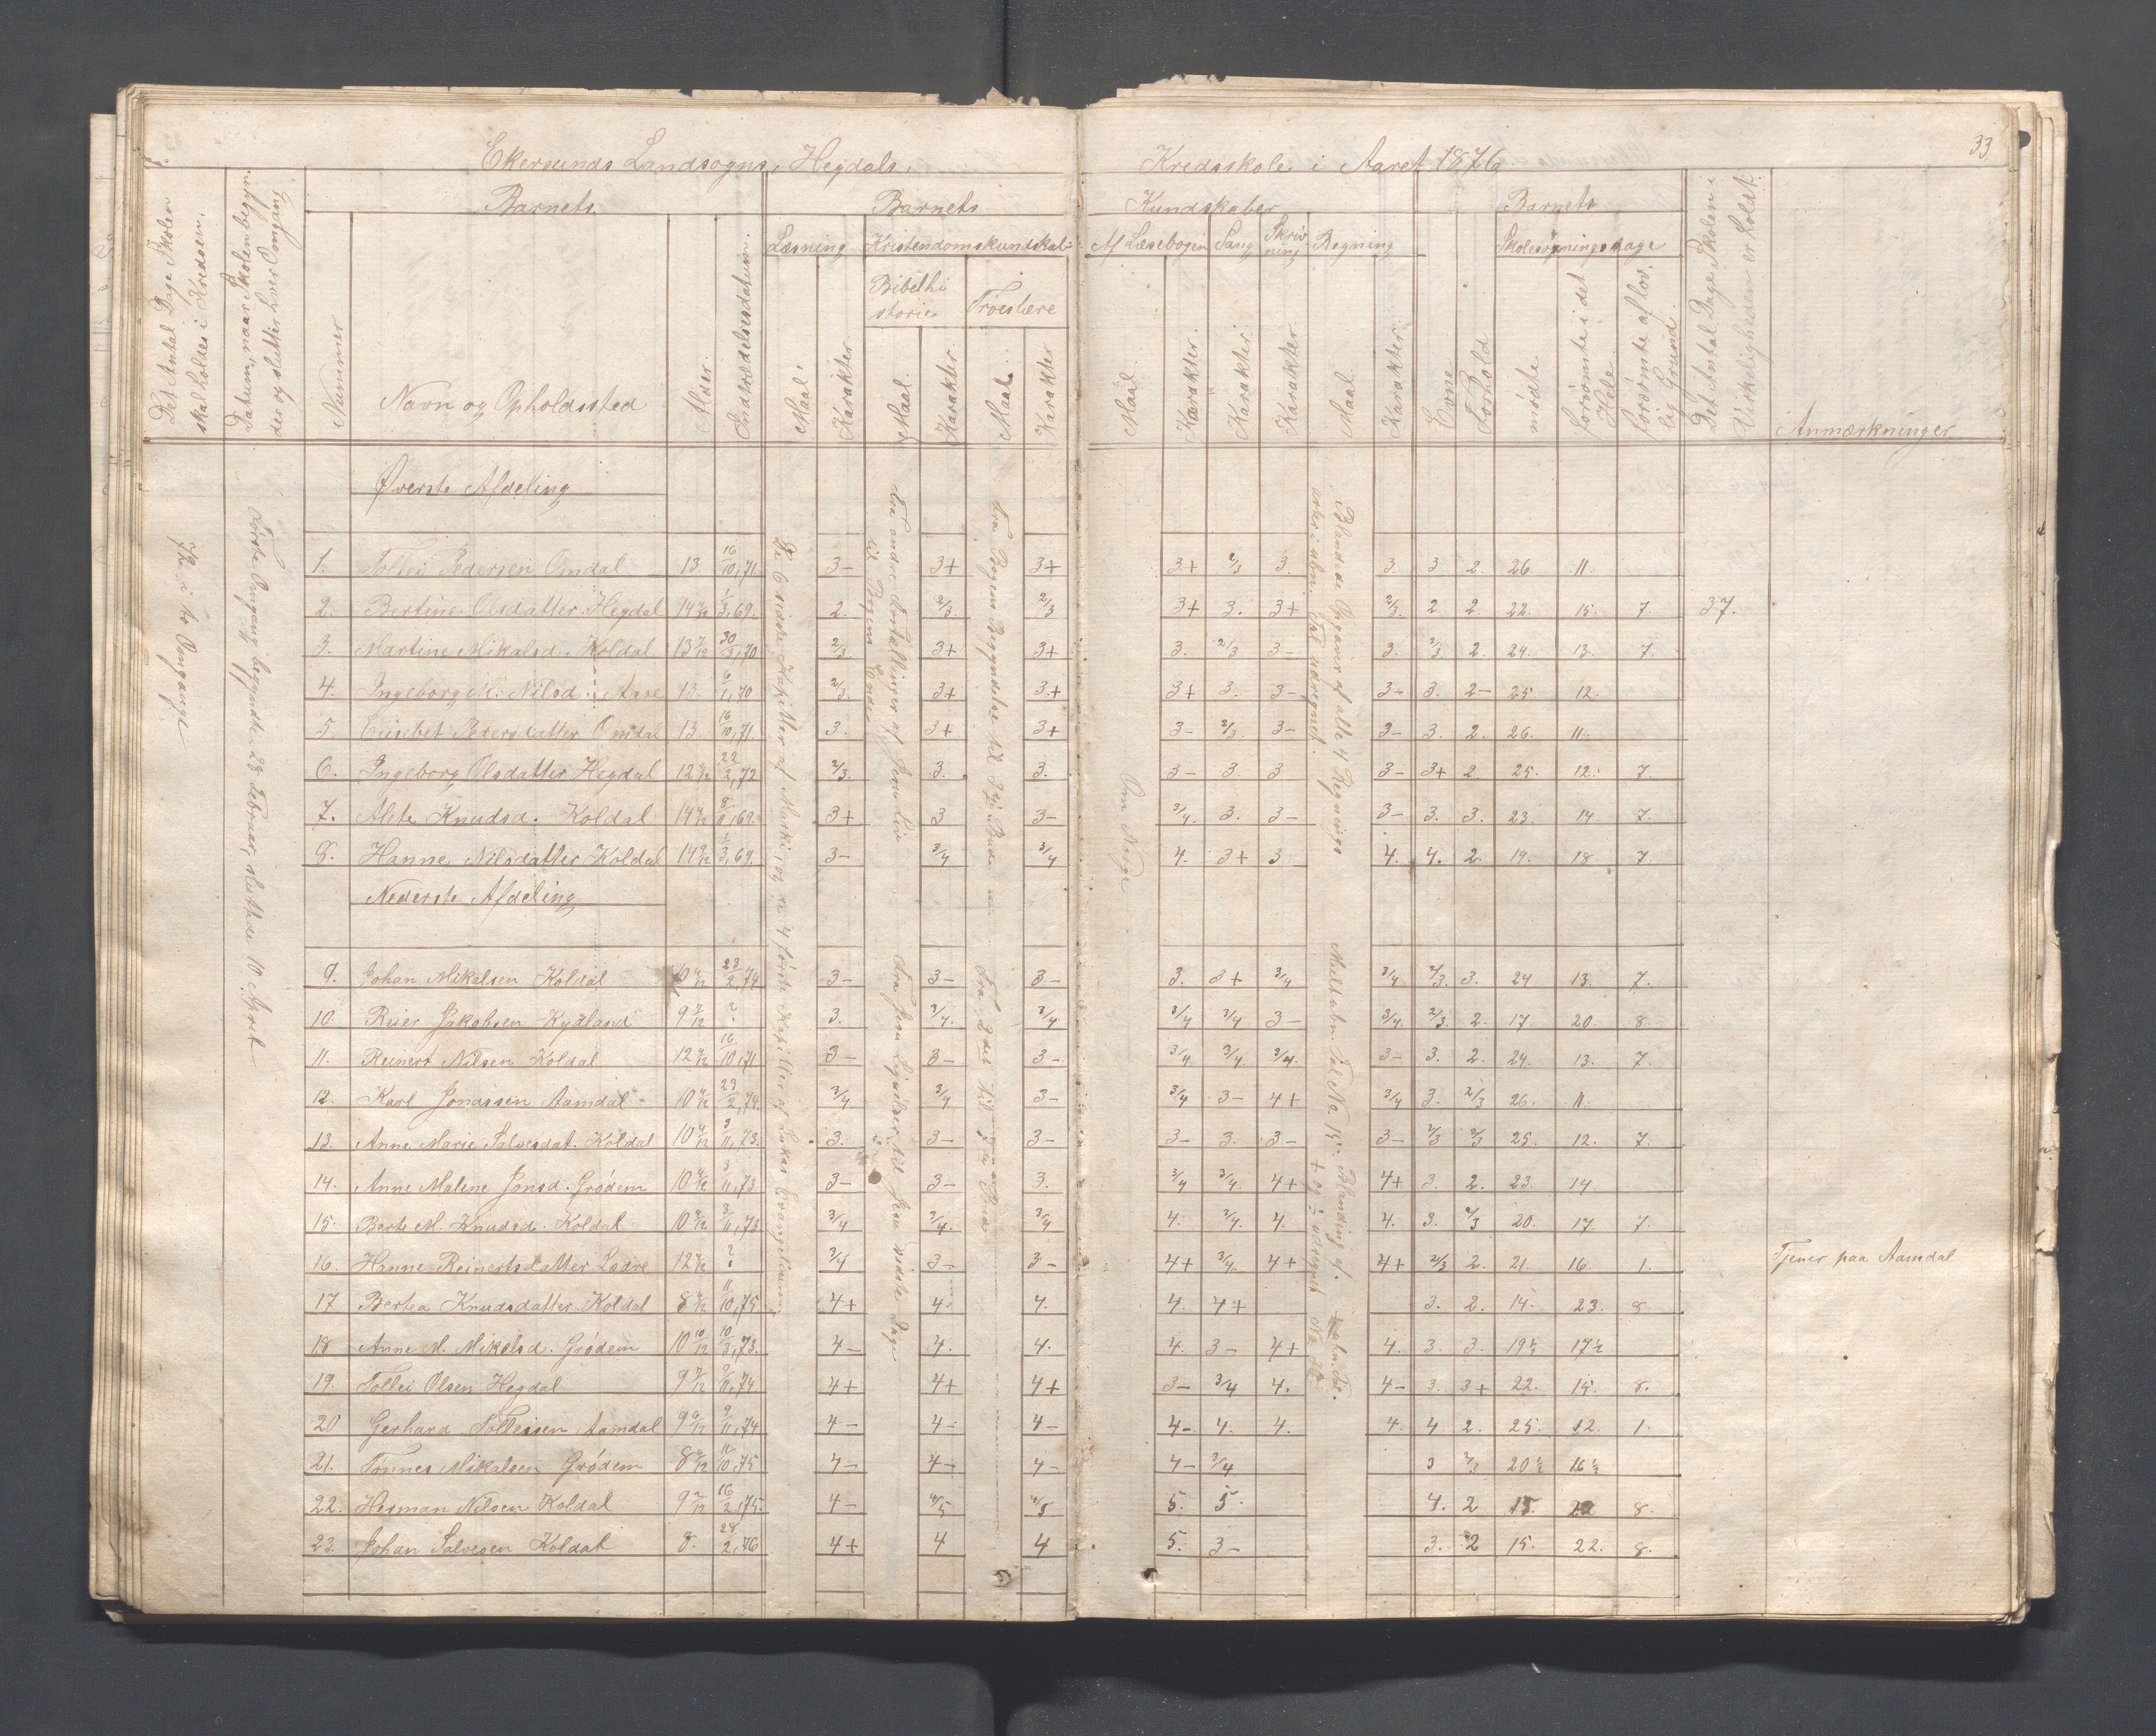 33
Ekersunds Landsogns, Hegdals, Kredsskole i Aaret 1876
Det Antal Dage Skolen skal holdes i Kredsen.
Datum, naar Skolen begynder og slutter hver Omgang.
Barnets
Barnets Kundskaber
Barnets
Nummer
Navn og Opholdssted
Alder.
Indtrædelsesdatum.
Læsning
Kristendomskundskab
Bibelhistorie
Troeslære
Af Læsebogen
Sang
Skrivning
Regning
Maal. Karakter.
Maal. Karakter.
Maal. Karakter
Maal. Karakter.
Karakter.
Karakter.
Maal. Karakter.
Evne
Forhold
Skolesøgningsdage
mødte
forsømte i det Hele
forsømte af lovlig Grund
Det Antal Dage Skolen i Virkeligheden er holdt.
Anmærkninger
i to Omgange
Første Omgang begyndte 28 Februar, sluttede 10 April
Øverste Afdeling
1. Tollei Pedersen Omdal 13. 16/10,71. 3- 3+ 3+ 3+ 2/3 3. 3. 3 2. 26. 11.
2. Bertine Olsdatter Hegdal 14 1/3,69. 2. 2/3. 2/3 3+ 3. 3+ 2/3. 2. 2. 22. 15. 7. 37.
3. Martine Mikalsd. Koldal 13 30/3,70 2/3. 3+ 3+ 3. 2/3 3- 3. 2/3 2. 24. 13. 7.
4. Ingeborg M. Nilsd. Aase 13. 6/1,70 2/3. 3+ 3+ 3+ 3. 3- 3- 3. 2- 25. 12.
5. Elisebet Pedersdatter Omdal 13. 16/10,71. 3. 3+ 3+ 3- 2/3. 3- 3- 3. 2. 26. 11.
6. Ingeborg Olsdatter Hegdal 12 22/2,72 2/3. 3. 3. 3- 3. 3 3- 3+ 2. 25. 12. 7.
7. Alete Knudsd. Koldal 14 8/11,69. 3+ 3 3- 3/4. 3. 3- 3- 3. 3. 23. 14. 7.
8. Hanne Nilsdatter Koldal 14 1/3,69. 3- 3/4 3/4 4. 3+ 3 4. 4. 2. 19. 18. 7
De 6 sidste Kapitler af Marki, og de 4 første Kapitler af Lukas Evangelium
Fra andre Fortællinger af Jesu Liv til Bogens Ende
Fra Bogens Begyndelse til
Om Norge
Blandede Opgaver af alle 4 Regnings
Nederste Afdeling
9. Johan Mikalsen Koldal 28/2,74 3- 3- 3- 3. 3+ 3/4 3/4 2/3. 3. 24 13. 7.
10. Reier Jakobsen Kydland 9 ? 3. 3/4. 3/4 3/4 3/4 3- 3/4. 2/3. 2. 17. 20. 8.
11. Reinert Nilsen Koldal 12 16/10,71 3- 3- 3- 3/4 3/4 3/4. 3- 3. 2. 24. 13. 7.
12. Karl Jonassen Aamdal 10 23/2,74. 3/4 3/4 3- 3/4 3- 4+ 3/4 3. 2/3 26. 11.
13. Anne Marie Salvesdat. Koldal 10 3/11,73. 3. 3- 3- 3- 3. 3- 3- 2/3 2/3 25. 12. 7.
14. Anne Malene Jonsd. Grødem 10 3/11,73 3- 3- 3. 3/4 3/4. 4+ 4+ 3. 2. 23. 14
15. Berte M. Knudsd. Koldal 10 3/11,73 3/4 3/4. 3/4 4. 3/4. 4. 4. 3. 2/3 20. 17. 7.
16. Hanne Reinertsdatter Lædre 12 ? 3/4 3- 3- 4+ 3/4 4+ 4+ 2/3 2. 21. 16. 1. Tjener paa Aamdal
17 Bertea Knudsdatter Koldal 8 11/10,75 4+ 4. 4. 4. 4+ 3. 2. 14. 23. 8.
18 Anne M. Mikelsd. Grødem 10 10/12 10/3,73. 4- 4. 4. 4. 3- 4+ 4. 3. 3. 19½ 17½
19. Tollei Olsen Hegdal 9 9/11,74 4+ 4+ 4+ 3- 3/4 4. 4- 3. 3+ 22. 15. 8.
20 Gerhard Tolleisen Aamdal 9 9/11,74 4- 4- 4- 4- 4. 4. 4. 4 2. 25. 12. 1.
21. Tønnes Mikalsen Grødem 8 11/10,75 4- 4- 4- 4- 3/4 3 2/3 20½ 16½
22. Herman Nilsen Koldal 9 16/2,75. 4- 4/5 4/5 5. 5. 4. 2 15. 22 8.
23. Johan Salvesen Koldal 8. 28/2,76 4+ 4 4 5. 3- 3. 2 15. 22. 8.
Fra Jesu Lignelser til Jesu sidste Dage